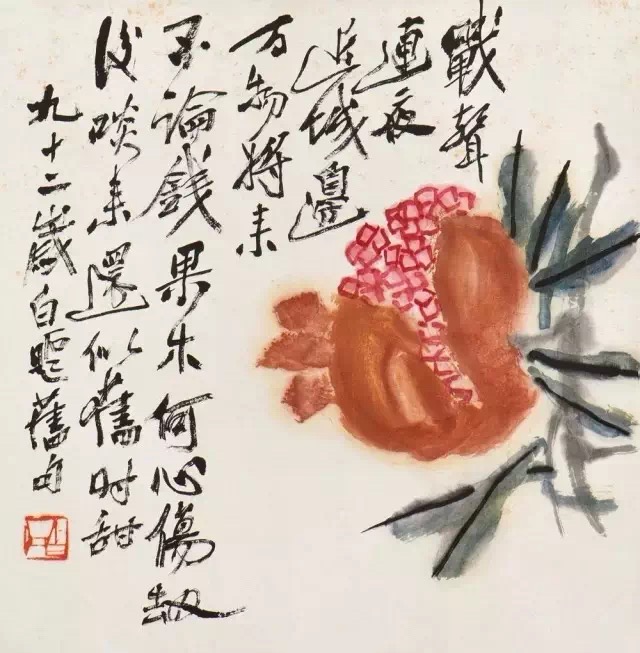 戰聲
連夜
近城邊
万物將来
不論錢果木何心傷劫
後啖来還似舊時甜
九十二歲白舊句